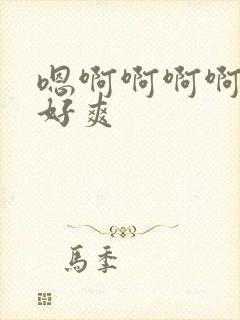 嗯啊啊啊啊
好爽
馬季